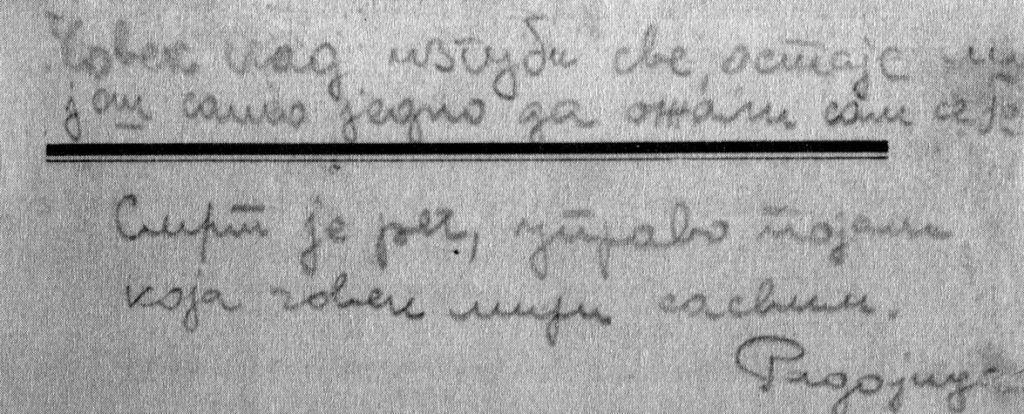 Човек кад изгуби све, остаје му
још само једно да ожали сам себе
Смрт је реч, управо појам
која човек мири сасвим.
Радојица